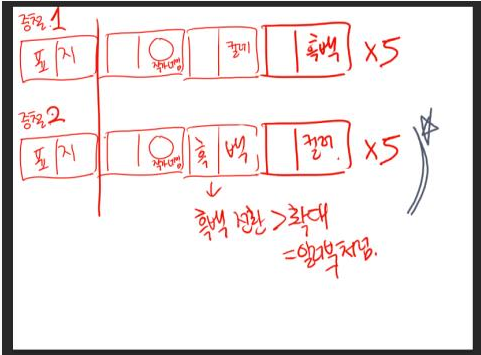 중철.1
표 지 작가네임 컬러 흑백 x5
중철2
표 지 작가네임 흑 백 컬러. x5
흑백 전환 > 확대
=일러북처럼.